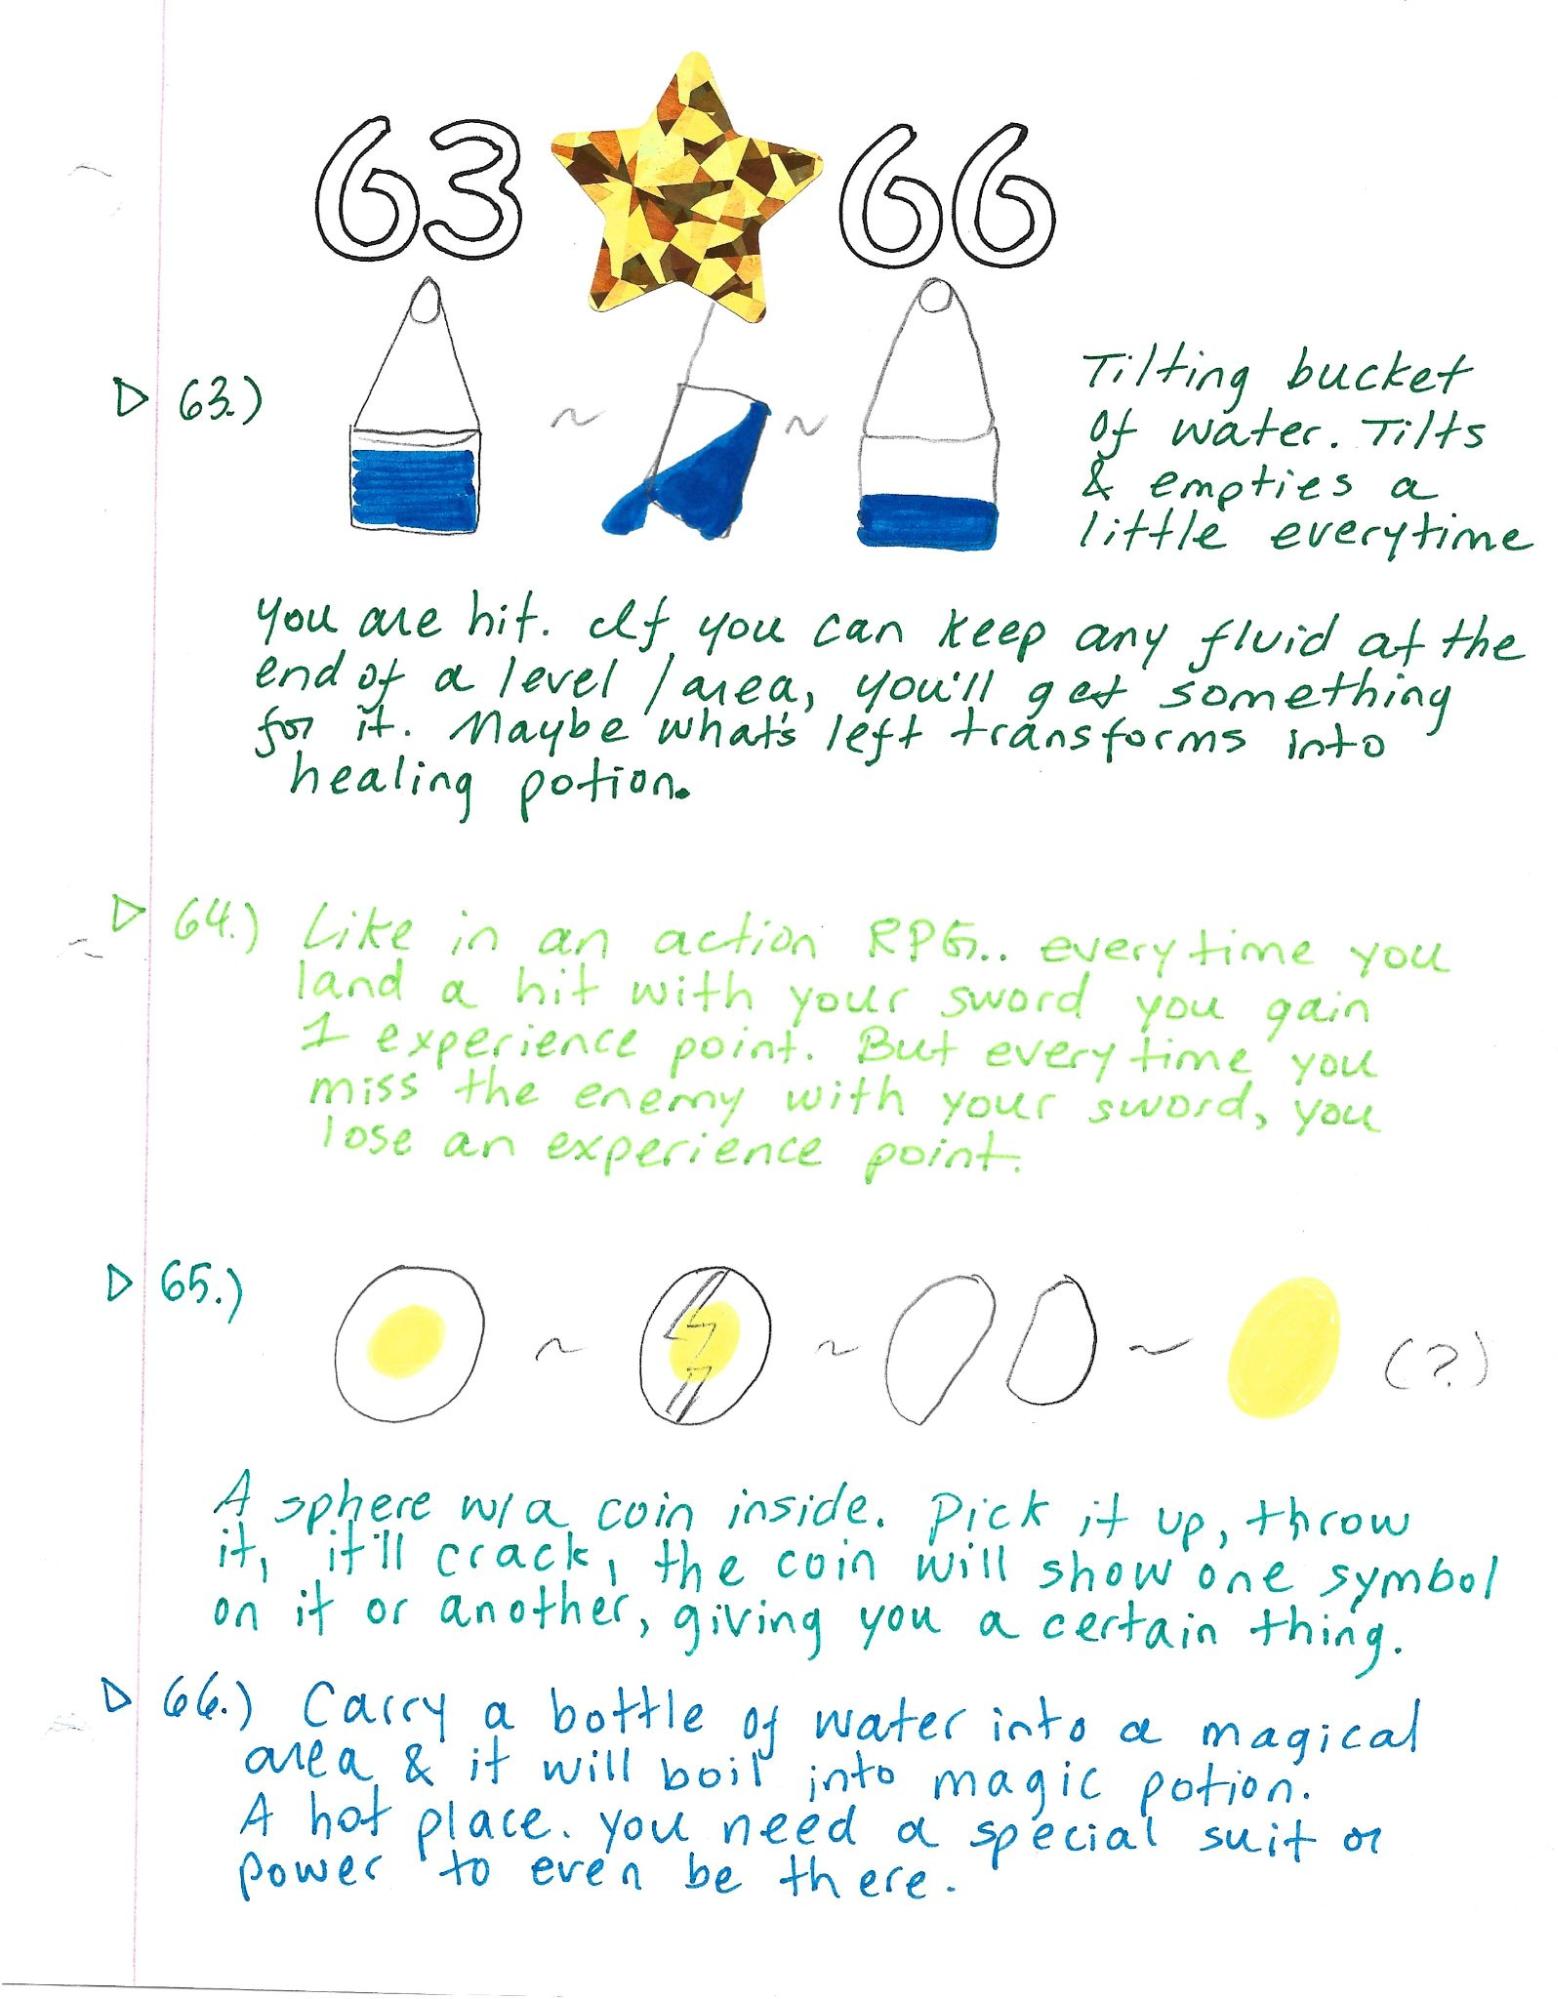 63 66
▷ 63.) ~ ~ Tilting bucket
of water. Tilts
& empties a
little everytime
you are hit. If you can keep any fluid at the
end of a level / area, you'll get something
for it. Maybe what's left transforms into
healing potion.
▷ 64.) Like in an action RPG.. everytime you
land a hit with your sword you gain
1 experience point. But everytime you
miss the enemy with your sword, you
lose an experience point.
▷ 65.) ~ ~ ~ (?)
A sphere w/a coin inside. Pick it up, throw
it, it'll crack, the coin will show one symbol
on it or another, giving you a certain thing.
▷ 66.) Carry a bottle of water into a magical
area & it will boil into magic potion.
A hot place. you need a special suit or
power to even be there.